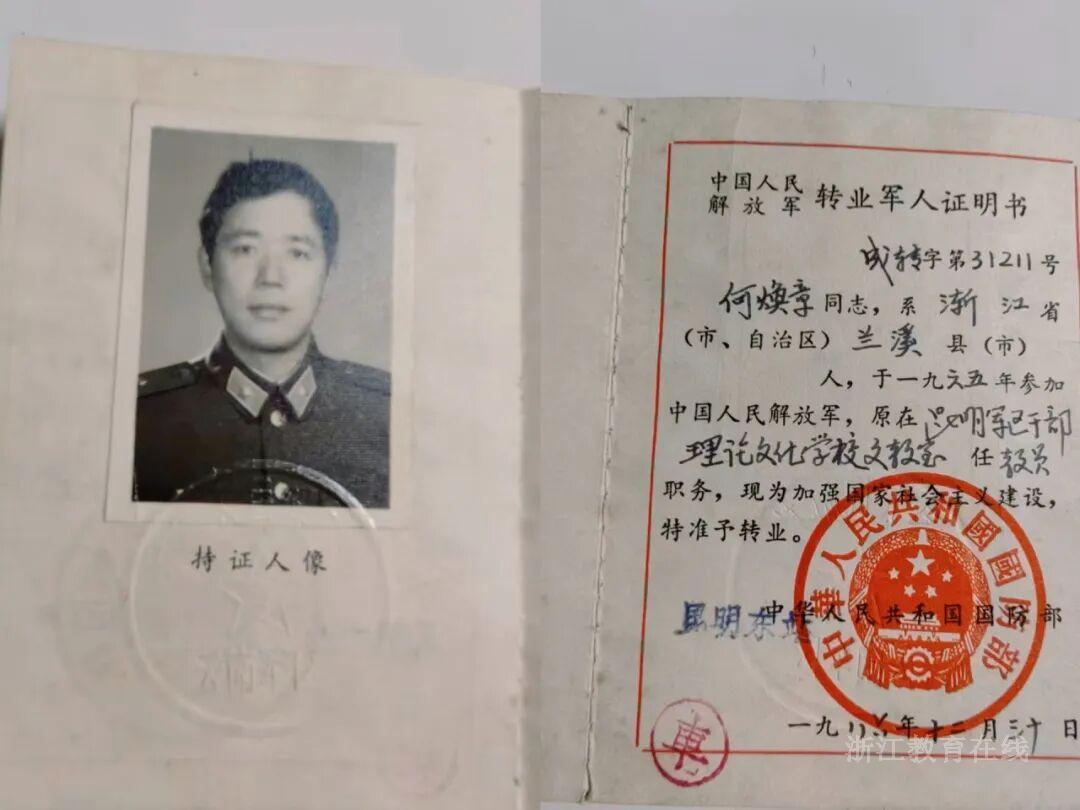 持证人像
中国人民
解放军
转业军人证明书
成转字第31211号
何焕章同志，系浙江省
（市、自治区）兰溪县（市）
人，于一九六五年参加
中国人民解放军，原在昆明军区干部
理论文化学校文教室任教员
职务，现为加强国家社会主义建设，
特准予转业。
中华人民共和国国防部
昆明东站
中華人民共和國國防部
一九八 年十二月三十日
東
浙江教育在线